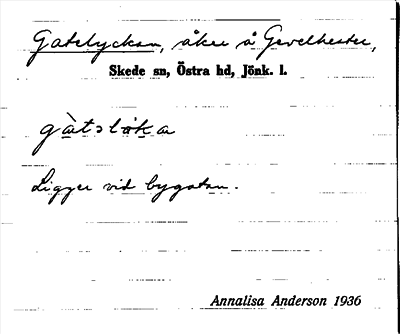 Gatelyckan, åker å Gevelhester,
Skede sn, Östra hd, Jönk. l.
gàtslöka
Ligger vid bygatan.
Annalisa Anderson 1936